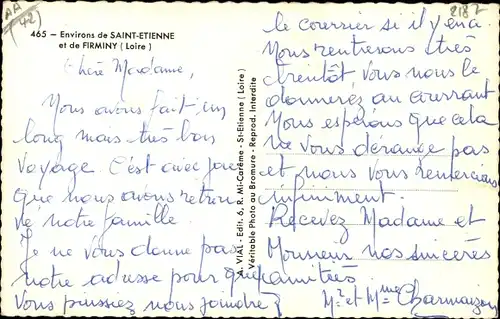 AA
42)
2187
465 — Environs de SAINT-ETIENNE
et de FIRMINY ( Loire )
Chère Madame,
Nous avons fait un
long mais très bon
voyage. C'est avec joie
que nous avons retrou
vé notre famille.
Je ne vous donne pas
notre adresse pour que
vous puissiez nous joindre
A. VIAL - Edit. 6, R. Mi-Carême - St-Etienne ( Loire )
Véritable Photo au Bromure - Reprod. Interdite
le courrier si il y en a.
Nous rentrerons très
bientôt vous nous le
donnerez au courant
Nous espérons que cela
ne vous dérange pas
et nous vous remercions
infiniment.
Recevez Madame et
Monsieur nos sincères
amitiés
Mr et Mme Charmaizon